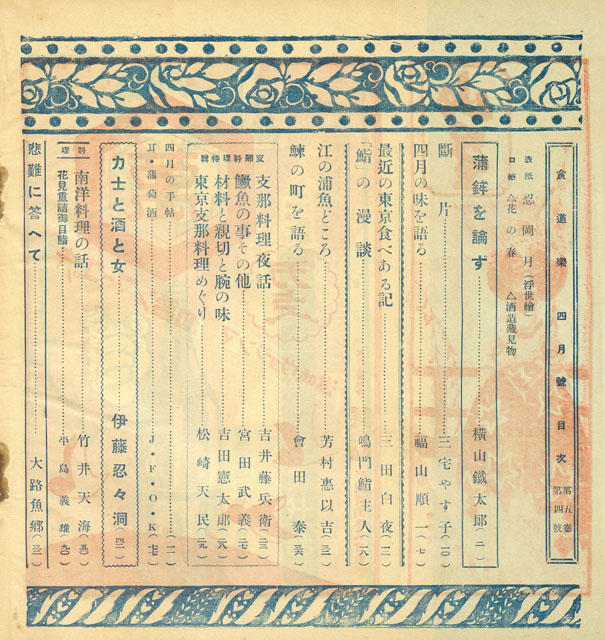 食道樂 四月號目次 第五卷 第四號
表紙 忍岡月(浮世繪)
口繪 △花の春 △酒造藏見物
蒲鉾を論ず 横山鐵太郎(二)
斷片 三宅やす子(一〇)
四月の味を語る 福山順一(七)
最近の東京食べある記 三田白夜(一二)
「鮨」の漫談 鳴門鮨主人(一六)
江の浦魚どころ 芳村惠以吉(三三)
鰊の町を語る 會田泰(三六)
支那料理特輯
支那料理夜話 吉井藤兵衛(二三)
鱖魚の事その他 宮田武義(二七)
材料と親切と腕の味 吉田憲太郎(一八)
東京支那料理めぐり 松崎天民(二九)
四月の手帖 (一一)
耳・葡萄酒 J・F・O・K(一七)
力士と酒と女 伊藤忍々洞
料理
南洋料理の話 竹井天海
花見重詰御目鮨 平島義雄
悲難に答へて 大路魚郷